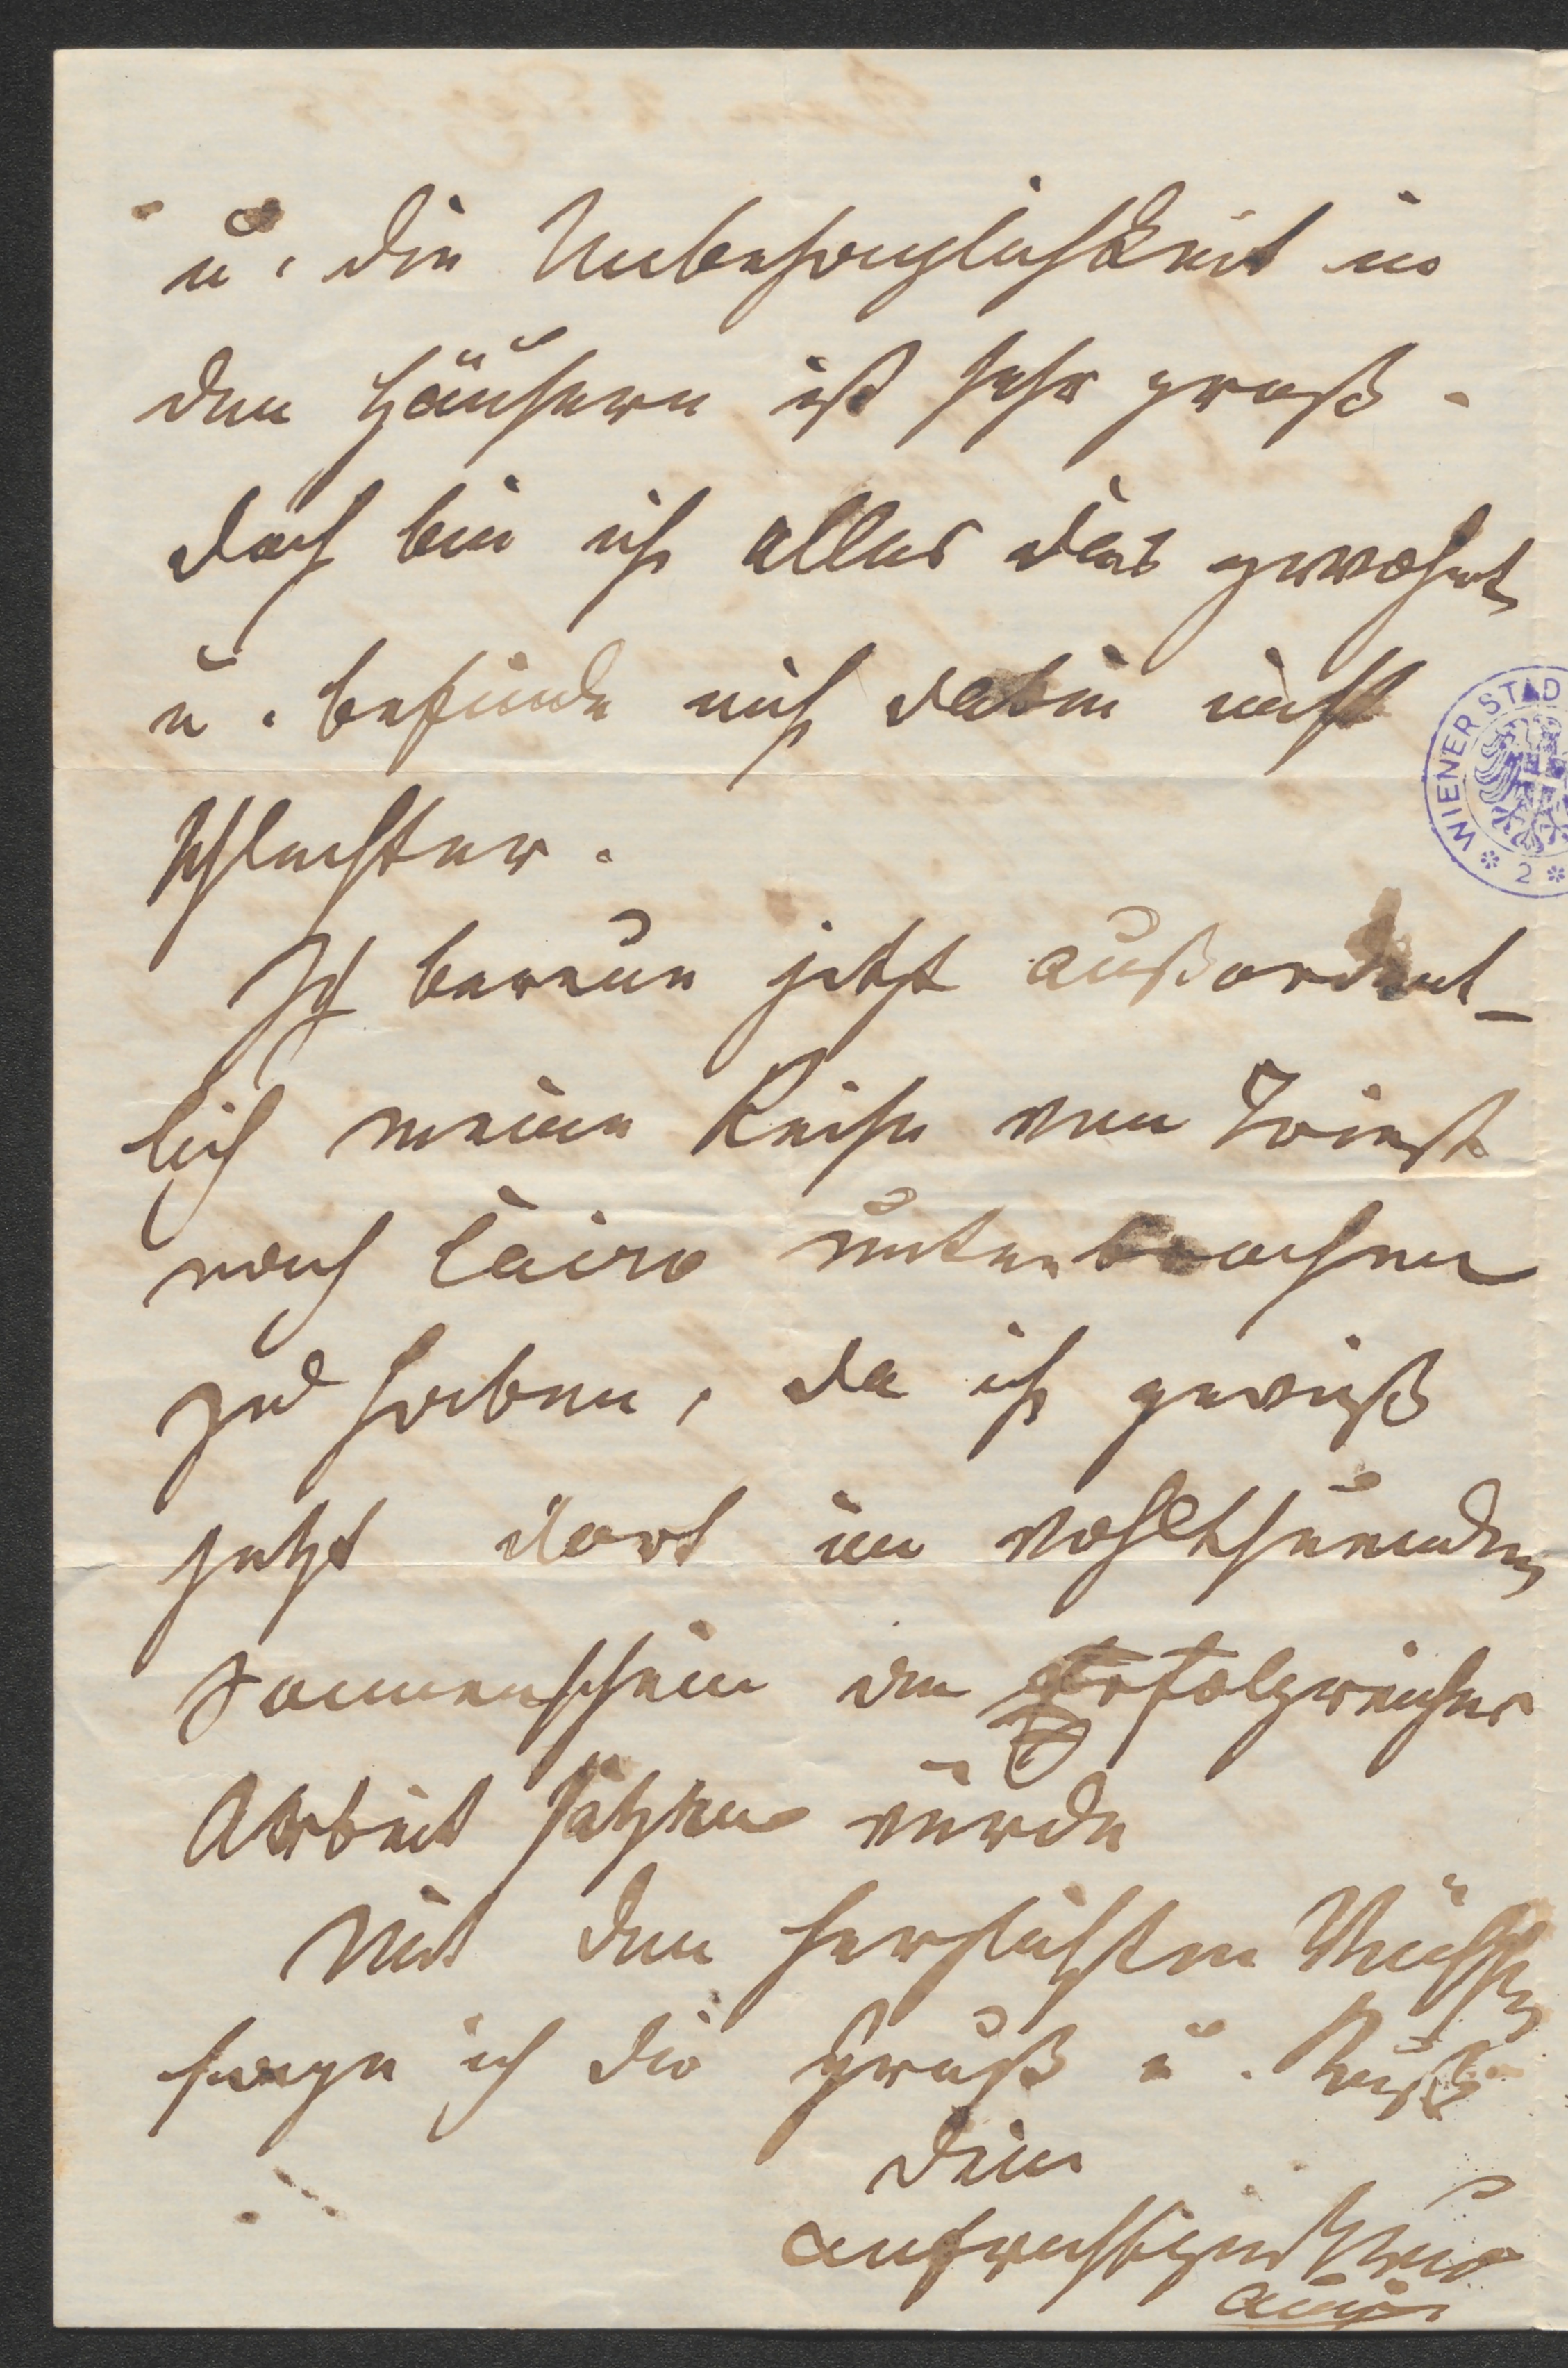 u. die Unbehaglichkeit in
den Häusern ist sehr groß.
doch bin ich alles das gewohnt
u. befinde mich dabei nicht
schlechter.
Ich bereue jetzt außordent-
lich meine Reise von Triest
nach Cairo unterbrochen
zu haben, da ich gewiß
jetzt dort im wohlthuenden
Sonnenschein an erfolgreicher
Arbeit sitzen würde
Mit den herzlichsten Wünschen
sage ich Dir Gruß u. Kuß
Dein
aufrichtiger
WIENER STAD
* 2 *